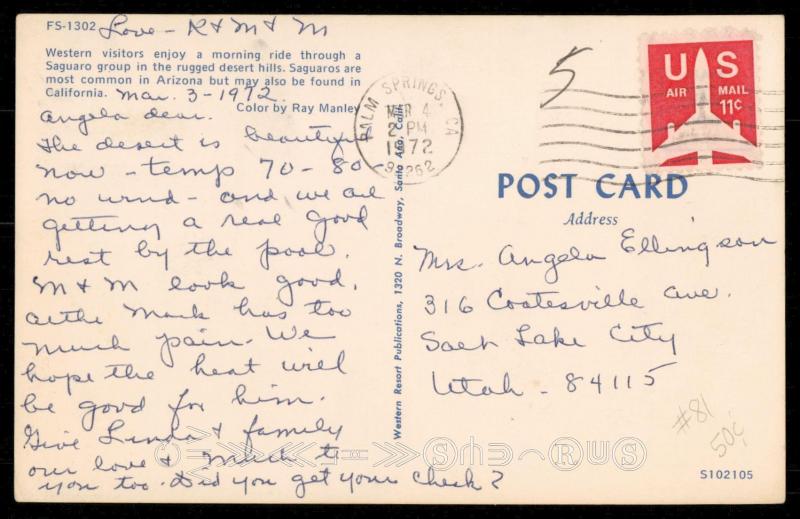 FS-1302 Love - R & M & M
Western visitors enjoy a morning ride through a
Saguaro group in the rugged desert hills. Saguaros are
most common in Arizona but may also be found in
California.
Color by Ray Manley
Mar. 3-1972.
Angela dear.
The desert is beautiful
now - temp 70-80-
no wind - and we are
getting a real good
rest by the pool.
M & M look good,
altho Mark has too
much pain. We
hope the heat will
be good for him.
Give Linda & family
our love & much to
you too. Did you get your check?
Western Resort Publications, 1320 N. Broadway, Santa Ana, Calif.
PALM SPRINGS, CA
MAR 4
2 PM
1972
92262
5
US
AIR MAIL
11¢
POST CARD
Address
Mrs. Angela Ellingson
316 Coatesville Ave.
Salt Lake City
Utah - 84115
#81
50¢
S102105